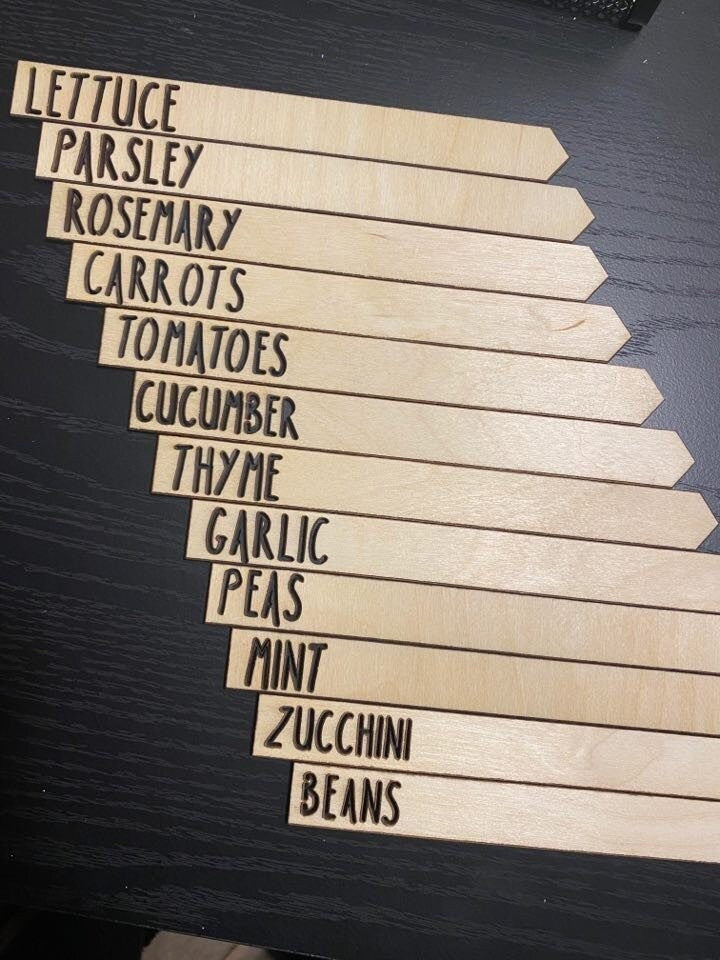 LETTUCE
PARSLEY
ROSEMARY
CARROTS
TOMATOES
CUCUMBER
THYME
GARLIC
PEAS
MINT
ZUCCHINI
BEANS